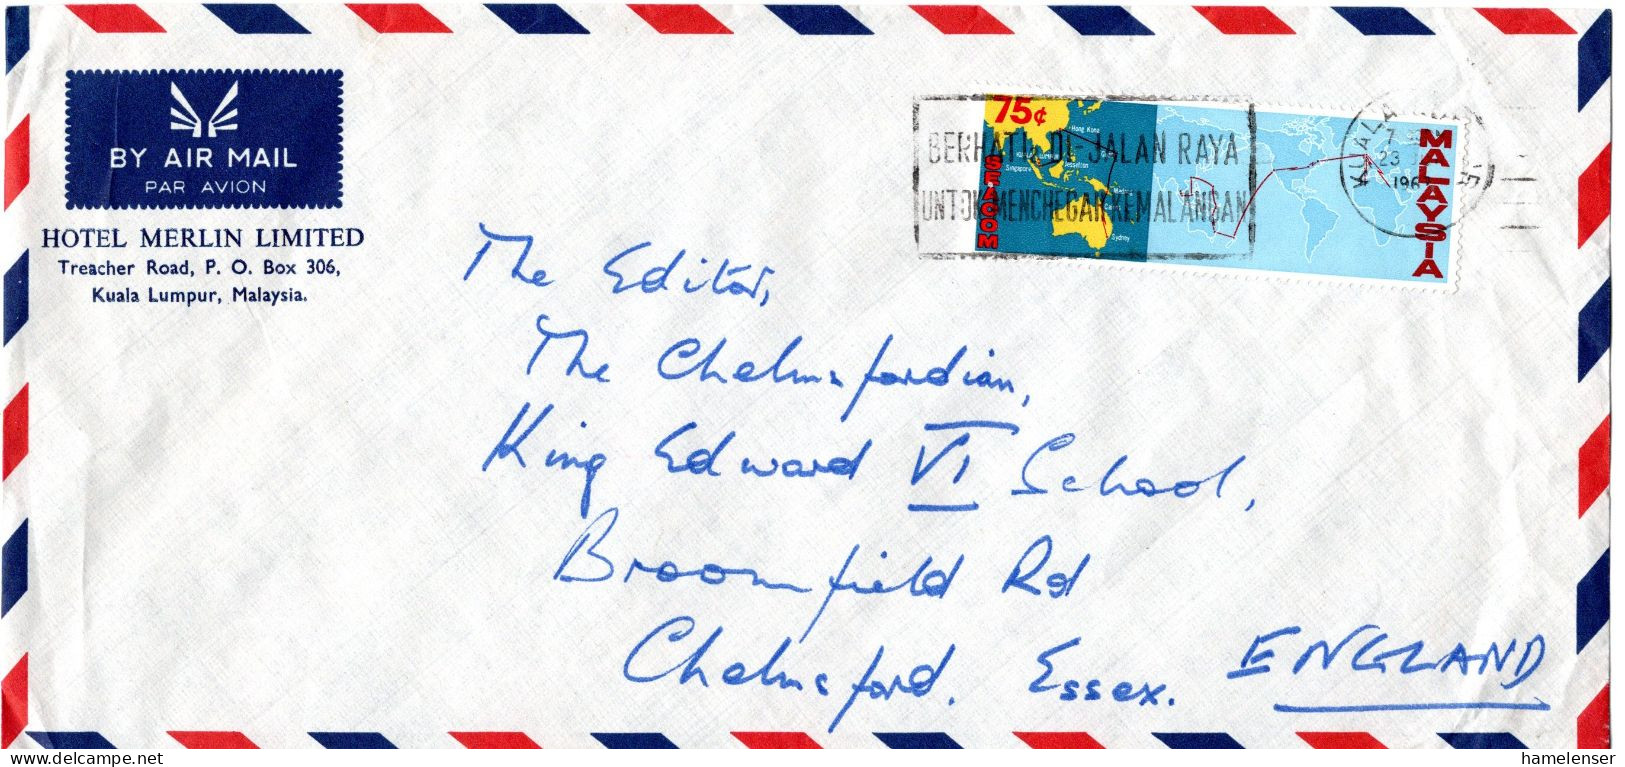 BY AIR MAIL
PAR AVION
HOTEL MERLIN LIMITED
Treacher Road, P. O. Box 306,
Kuala Lumpur, Malaysia.
75¢
SEACOM
MALAYSIA
Hong Kong
Singapore
Jesselton
Sydney
BERHATI2 DI-JALAN RAYA
UNTOK MENCHEGAH KEMALANGAN
KUALA
23
The Editor,
The Chelmsfordian,
King Edward VI School,
Broomfield Rd
Chelmsford. Essex. ENGLAND
hamelenser